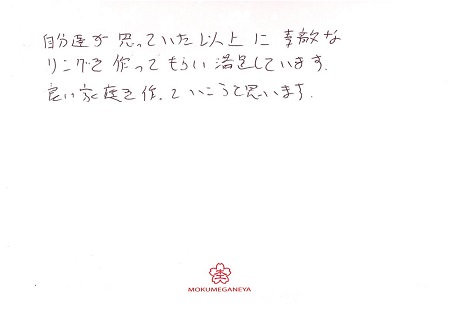 自分達が思っていた以上に素敵な
リングを作ってもらい満足しています.
良い家庭を作っていこうと思います.
MOKUMEGANEYA